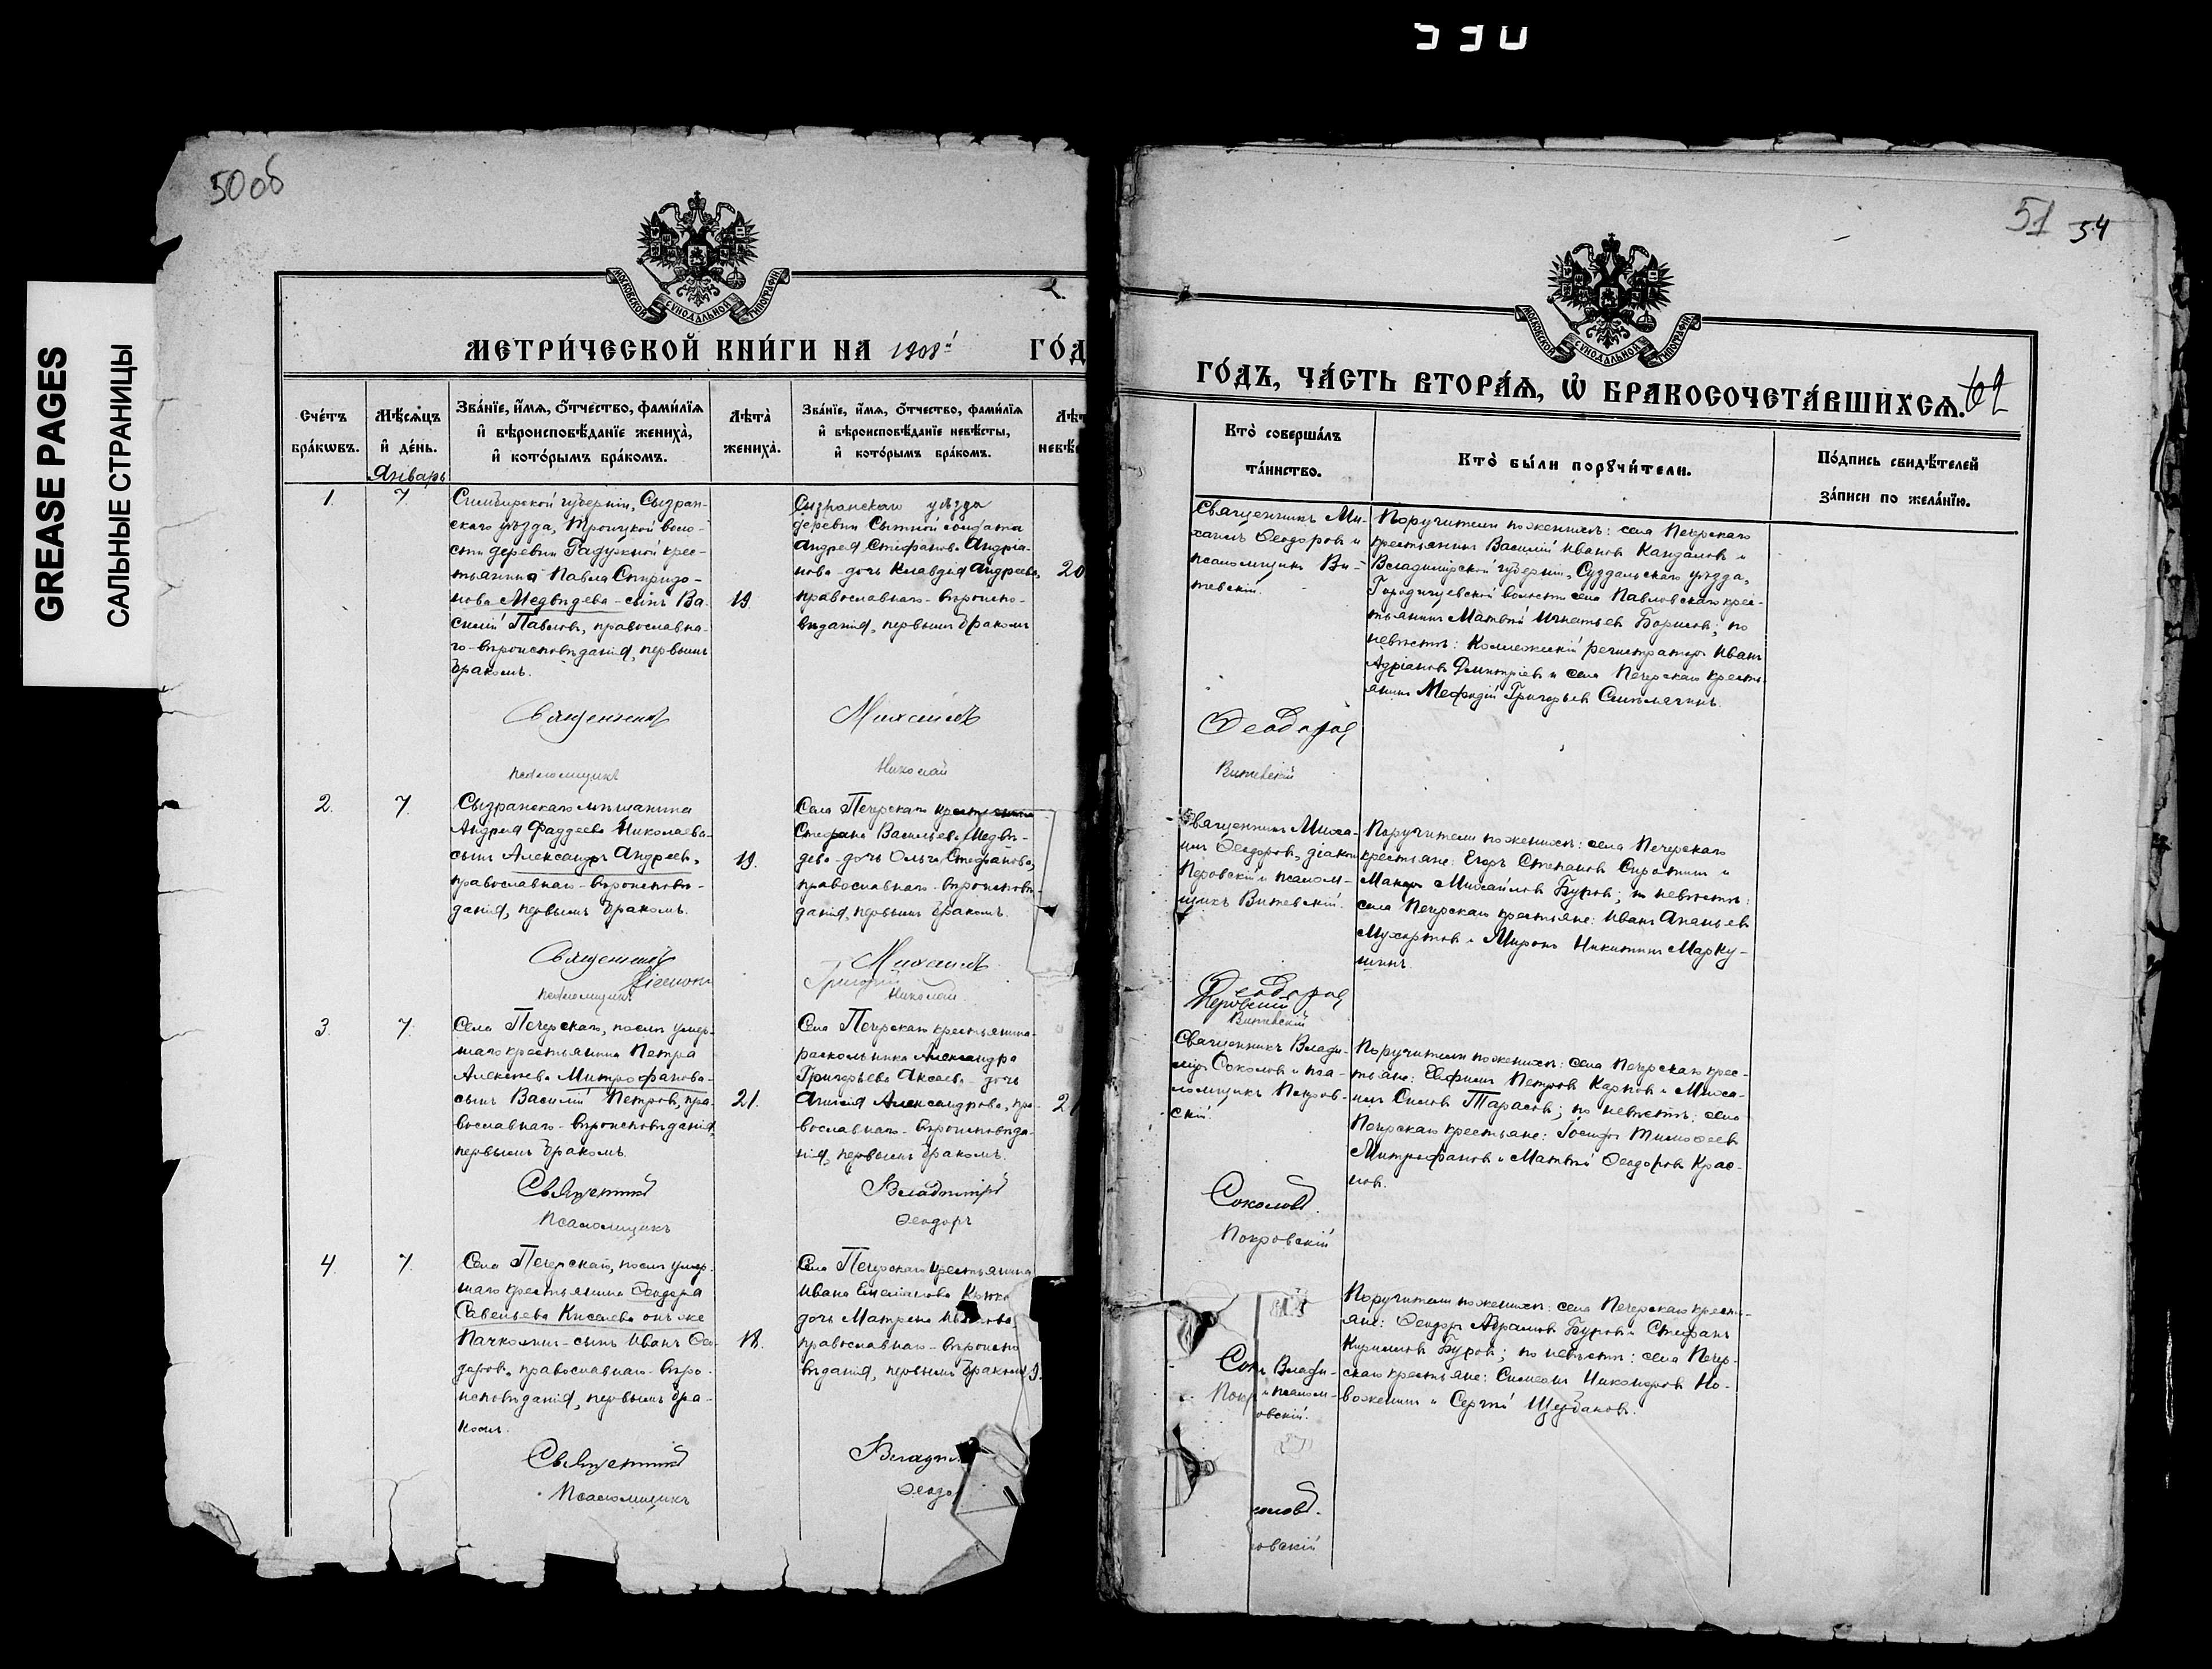 530
50об
МОСКОВСКОЙ СѴНОДАЛЬНОЙ ТИПОГРАФІИ
МЕТРИ́ЧЕСКОЙ КНИ́ГИ НА 1908й ГО́Д
Сче́тъ бра́кωвъ.
Мѣ́сѧцъ и҆ де́нь.
Зва́нїе, и҆́мѧ, ѻ҆́тчество, фами́лїѧ и҆ вѣроисповѣ́данїе жениха̀, и҆ кото́рымъ бра́комъ.
Лѣта̀ жениха̀.
Зва́нїе, и҆́мѧ, ѻ҆́тчество, фами́лїѧ и҆ вѣроисповѣ́данїе невѣ́сты, и҆ кото́рымъ бра́комъ.
Лѣт невѣ́с
Январь
1.
7
Симбирской губерніи, Сызран-
скаго уѣзда, Троицкой воло-
сти деревни Радужной крес-
тьянина Павла Спиридо-
нова Медвѣдева - сынъ Ва-
силій Павловъ, православна-
го - вѣроисповѣданія, первымъ
бракомъ.
19
Сызранскаго уѣзда
деревни Сытной солдата
Андрея Стефанова Андріа-
нова - дочь Клавдія Андреева,
православнаго - вѣроиспо-
вѣданія, первымъ бракомъ
20
Священникъ Михаилъ
псаломщикъ Николай
2.
7.
Сызранскаго мѣщанина
Андрея Фаддеева Николаева-
сынъ Александръ Андреевъ,
православнаго - вѣроисповѣ-
данія, первымъ бракомъ.
19.
Села Печерскаго
Стефана Васильева Медвѣ-
дева - дочь Ольга Стефанова,
православнаго - вѣроисповѣ-
данія, первымъ бракомъ.
Священникъ Михаилъ
Діаконъ Григорій
псаломщикъ Николай
3.
7.
Села Печерскаго, послѣ умер-
шаго крестьянина Петра
Алексѣева Митрофанова-
сынъ Василій Петровъ, пра-
вославнаго - вѣроисповѣданія,
первымъ бракомъ.
21.
Села Печерскаго крестьянина-
раскольника Александра
Григорьева Аксаева - дочь
Александрова, пра-
вославнаго - вѣроисповѣда-
нія, первымъ бракомъ.
2
Священникъ Владиміръ
Псаломщикъ Ѳеодоръ
4.
7.
Села Печерскаго, послѣ умер-
шаго крестьянина Ѳеодора
Савельева Киселева онъ же
Пачколинъ - сынъ Иванъ Ѳео-
доровъ, православнаго - вѣро-
исповѣданія, первымъ бра-
комъ.
18.
Села Печерскаго крестьянина
Ивана Емельянова
дочь Матрена
православнаго - вѣроиспо
вѣданія, первымъ бракомъ
9.
Священникъ Влади
Псаломщикъ Ѳеодо
51 54
МОСКОВСКОЙ СѴНОДАЛЬНОЙ ТИПОГРАФІИ
ГО́ДЪ, ЧА́СТЬ ВТОРА́Ѧ, Ѽ БРАКОСОЧЕТА́ВШИХСѦ.
62
Кто̀ соверша́лъ та́инство.
Кто̀ бы́ли порꙋчи́тели.
По́дпись свидѣ́телей за́писи по жела́нїю.
Священникъ Ми-
хаилъ Ѳеодоровъ и
псаломщикъ Ви-
тевскій.
Поручители по женихѣ: села Печерскаго
крестьянинъ Василій Ивановъ Кандаловъ и
Владимірской губерніи, Суздальскаго уѣзда,
Городищевской волости села Павловскаго крес-
тьянинъ Матвѣй Игнатьевъ Борисовъ; по
невѣстѣ: Коллежскій регистраторъ Иванъ
Адріановъ Дмитріевъ и села Печерскаго кресть-
янинъ Мефодій Григорьевъ
Ѳеодоровъ
Витевскій
Священникъ Миха-
илъ Ѳеодоровъ, діаконъ
Перовскій и псалом-
щикъ Витевскій.
Поручители по женихѣ: села Печерскаго
крестьяне: Егоръ Степановъ Сиротинъ и
Макаръ Михайловъ Буровъ; по невѣстѣ:
села Печерскаго крестьяне: Иванъ Ананьевъ
Мухортовъ и Миронъ Никитинъ Марку-
шинъ.
Ѳеодоровъ
Перовскій
Витевскій
Священникъ Влади-
міръ Соколовъ и пса-
ломщикъ Покров-
скій.
Поручители по женихѣ: села Печерскаго крес-
тьяне: Евфимъ Петровъ Карповъ и Миха-
илъ Силовъ Тарасовъ; по невѣстѣ: села
Печерскаго крестьяне: Іосифъ Тимоѳеевъ
Митрофановъ и Матвѣй Ѳеодоровъ Крас-
новъ.
Соколовъ.
Покровскій
Влади-
и псалом-
овскій.
Сок
Покр
Поручители по женихѣ: села Печерскаго кресть-
яне: Ѳеодоръ Абрамовъ Буровъ и Стефанъ
Кириловъ Буровъ; по невѣстѣ: села Печер-
скаго крестьяне: Симеонъ Никаноровъ Но-
воженинъ и Сергѣй Щербаковъ.
оловъ.
овскій
GREASE PAGES
САЛЬНЫЕ СТРАНИЦЫ